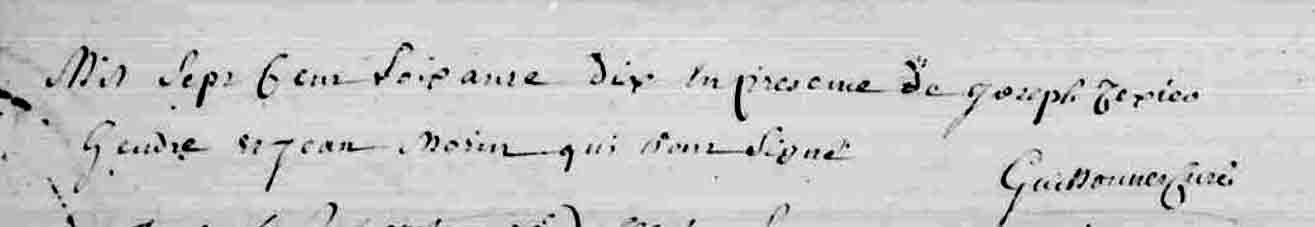 Mil Sept Cent Soixante dix en presence de joseph texier
Gendre et jean Morin qui sont Signé
Curé